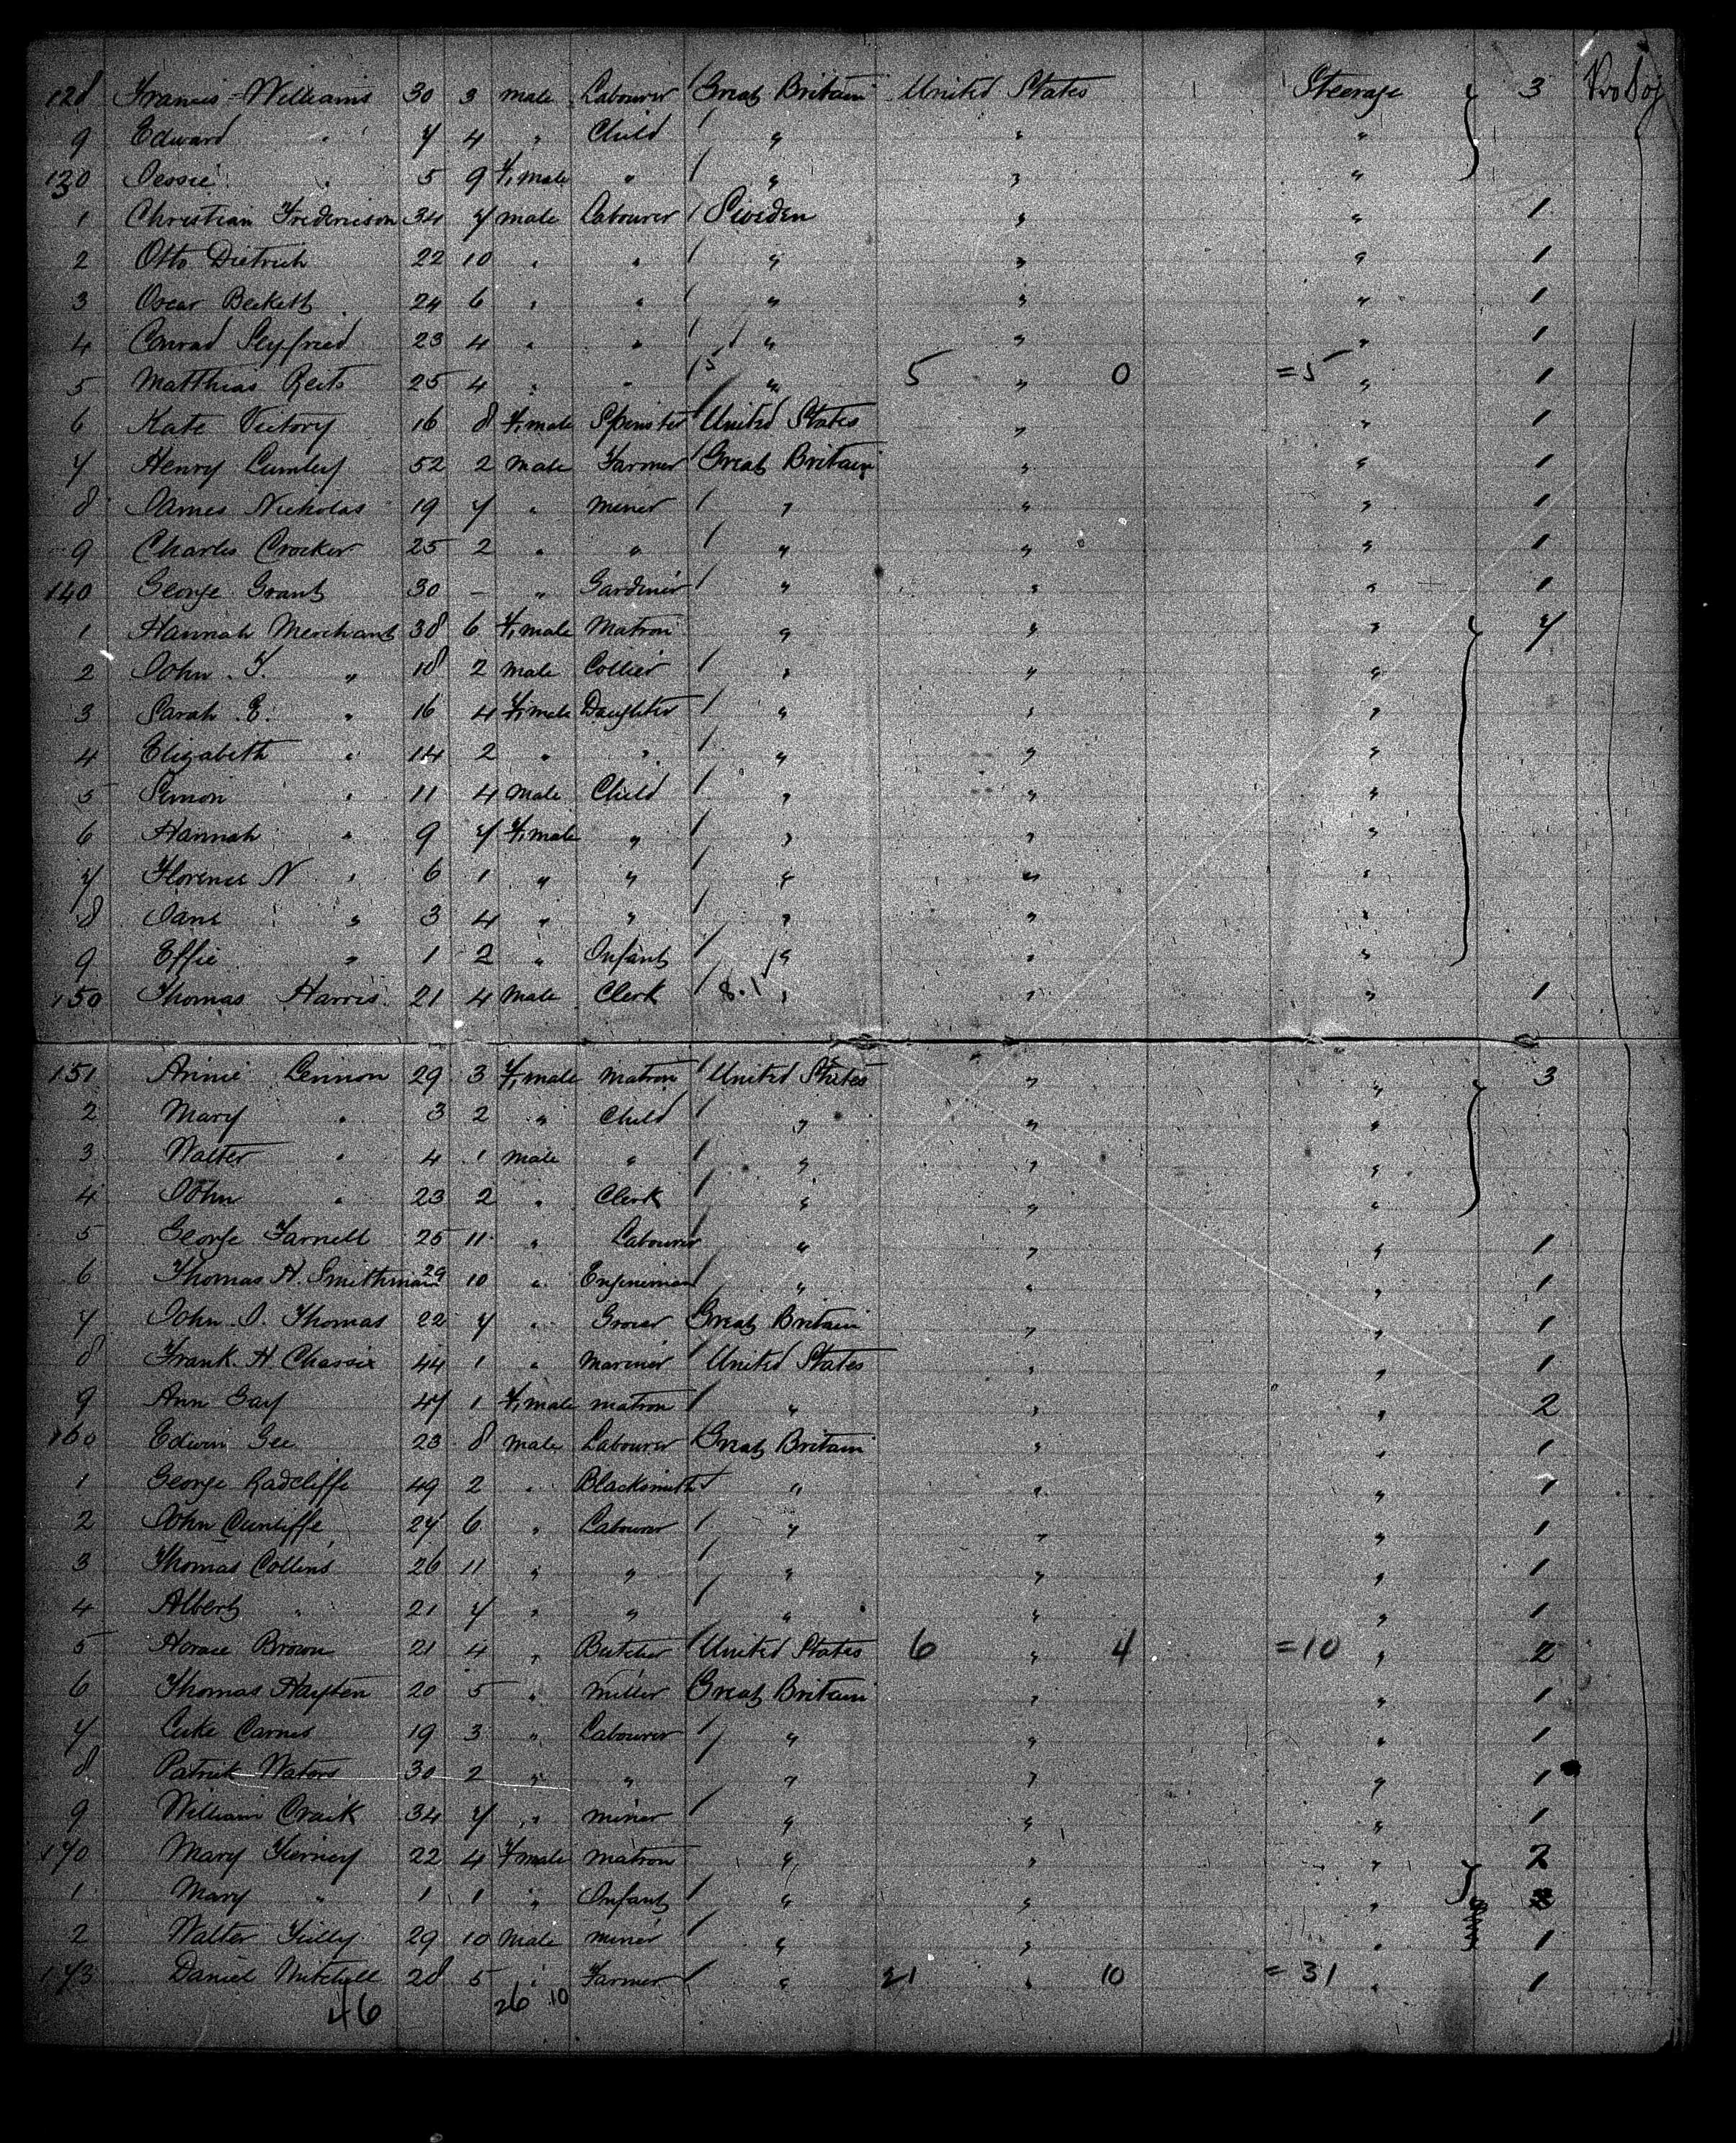 128 Francis Williams 30 3 male Labourer / Great Britain United States Steerage 3
9 Edward " 7 4 " Child / " " "
130 Jessie " 5 9 Female " / " " "
1 Christian Frederieson 34 7 male Labourer / Sweden " " 1
2 Otto Dietrich 22 10 " " / " " " 1
3 Oscar Beckett 24 6 " " / " " " 1
4 Conrad Seyfried 23 4 " " / " " " 1
5 Matthias Reits 25 4 " " / 5 " 5 " 0 =5 " 1
6 Kate Victory 16 8 Female Spinster / United States " " 1
7 Henry Lumley 52 2 Male Farmer / Great Britain " " 1
8 James Nicholas 19 7 " Miner / " " " 1
9 Charles Crocker 25 2 " " / " " " 1
140 George Grant 30 – " Gardiner / " " " 1
1 Hannah Merchant 38 6 Female Matron " " " 7
2 John T. " 18 2 Male Collier / " " "
3 Sarah E. " 16 4 Female Daughter / " " "
4 Elizabeth " 14 2 " " / " " "
5 Simon " 11 4 Male Child / " " "
6 Hannah " 9 7 Female " / " " "
7 Florence N " 6 1 " " / " " "
8 Jane " 3 4 " " / " " "
9 Effie " 1 2 " Infant / " " "
150 Thomas Harris 21 4 Male Clerk / 8.1 " " " 1
151 Annie Lennon 29 3 Female Matron / United States " " 3
2 Mary " 3 2 " Child / " " "
3 Walter " 4 1 Male " / " " "
4 John " 23 2 " Clerk / " " "
5 George Farnell 25 11 " Labourer / " " " 1
6 Thomas H. Smithman 29 10 " Engineman / " " " 1
7 John J. Thomas 22 7 " Grocer Great Britain " " 1
8 Frank H. Chassie 44 1 " Mariner / United States " " 1
9 Ann Gay 47 1 Female matron / " " " 2
160 Edwin Gee 23 8 Male Labourer Great Britain " " 1
1 George Radcliffe 49 2 " Blacksmith / " " " 1
2 John Cunliffe 27 6 " Labourer / " " " 1
3 Thomas Collins 26 11 " " / " " " 1
4 Albert " 21 7 " " / " " " 1
5 Horace Brown 21 4 " Butcher / United States 6 " 4 =10 " 2
6 Thomas Hayten 20 5 " Miller Great Britain " " 1
7 Luke Carnes 19 3 " Labourer / " " " 1
8 Patrick Waters 30 2 " " / " " " 1
9 William Craik 34 7 " Miner / " " " 1
170 Mary Tierney 22 4 Female Matron " " " 2
1 Mary " 1 1 " Infant / " " "
2 Walter Tully 29 10 Male Miner / " " " 1
173 Daniel Mitchell 28 5 " Farmer / " 21 " 10 = 31 " 1
46 26 10